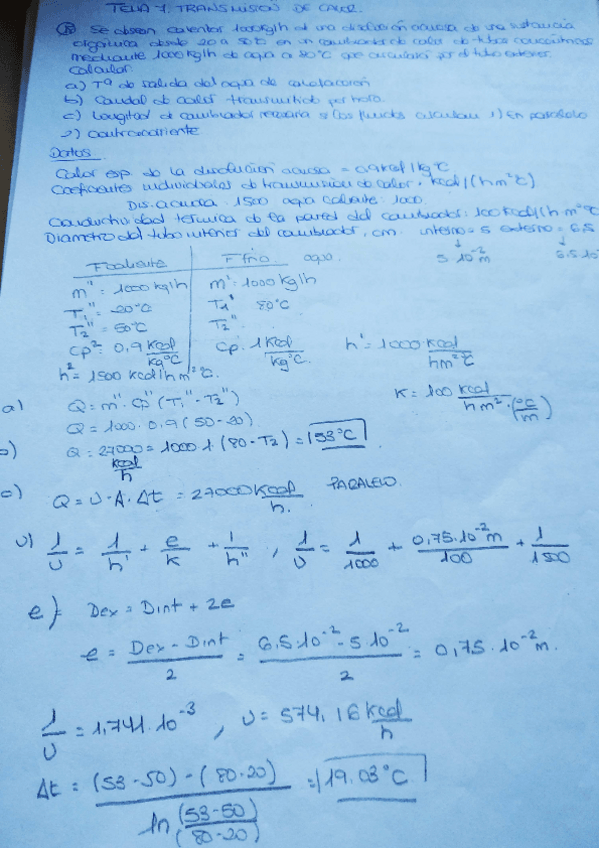 TEMA 7. TRANSMISIÓN DE CALOR.
Se desean calentar 1000kg/h de una disolución acuosa de una sustancia
orgánica desde 20 a 50ºC en un cambiador de calor de tubos concéntricos
mediante 1000 kg/h de agua a 80ºC que circulará por el tubo exterior.
Calcular:
a) Tª de salida del agua de calefacción
b) Caudal de calor transmitido por hora.
c) Longitud de cambiador necesaria si los fluidos circulan 1) En paralelo
2) contracorriente
Datos
Calor esp. de la disolución acuosa = 0,9 kcal/kgºC
Coeficientes individuales de transmisión de calor, kcal/(hm²ºC)
Dis. acuosa: 1500 agua caliente: 1000.
Conductividad térmica de la pared del cambiador: 100 kcal/(h m² ºC
Diámetro del tubo interior del cambiador, cm. interno = 5 externo = 6.5
5 10⁻²m 6.5.10
F. caliente F. frío agua.
m'' = 1000 kg/h m' = 1000 kg/h
T₁'' = 20ºC T₁' 80ºC
T₂'' = 50ºC T₂''
Cp² = 0,9 kcal/kgºC Cp: 1 kcal/kgºC h' = 1000 kcal/hm²ºC
h² = 1500 kcal/hm²ºC.
a) Q = m''. Cp'' (T₁'' - T₂'') K = 100 kcal/h m² (ºC/m)
Q = 1000. 0,9 (50-20)
b) Q = 27000 kcal/h = 1000.1 (80-T₂) = 53ºC
c) Q = U.A.Δt = 27000 kcal/h. PARALELO.
U) 1/U = 1/h' + e/k + 1/h'' , 1/U = 1/1000 + 0,75.10⁻²m/100 + 1/1500
e) Dex = Dint + 2e
e = Dex - Dint/2 = 6,5.10⁻² - 5 10⁻²/2 = 0,75.10⁻²m.
1/U = 1,741.10⁻³ , U = 574,16 kcal/h
Δt = (53-50) - (80-20)/ln (53-50)/(80-20) = 19.03ºC